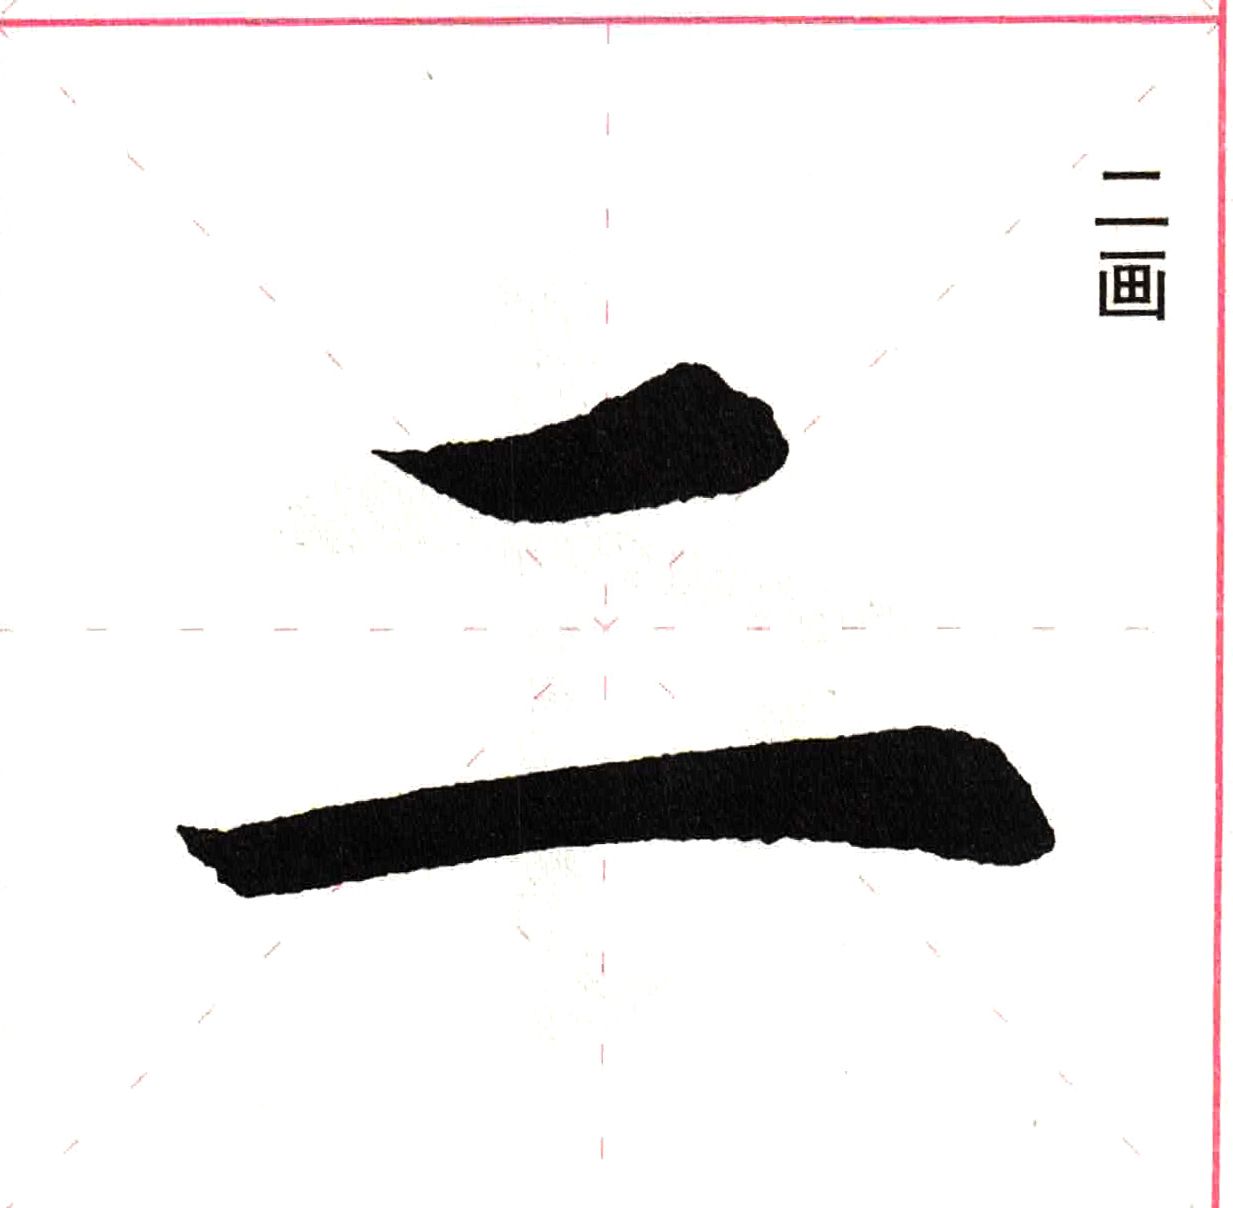 二画
二